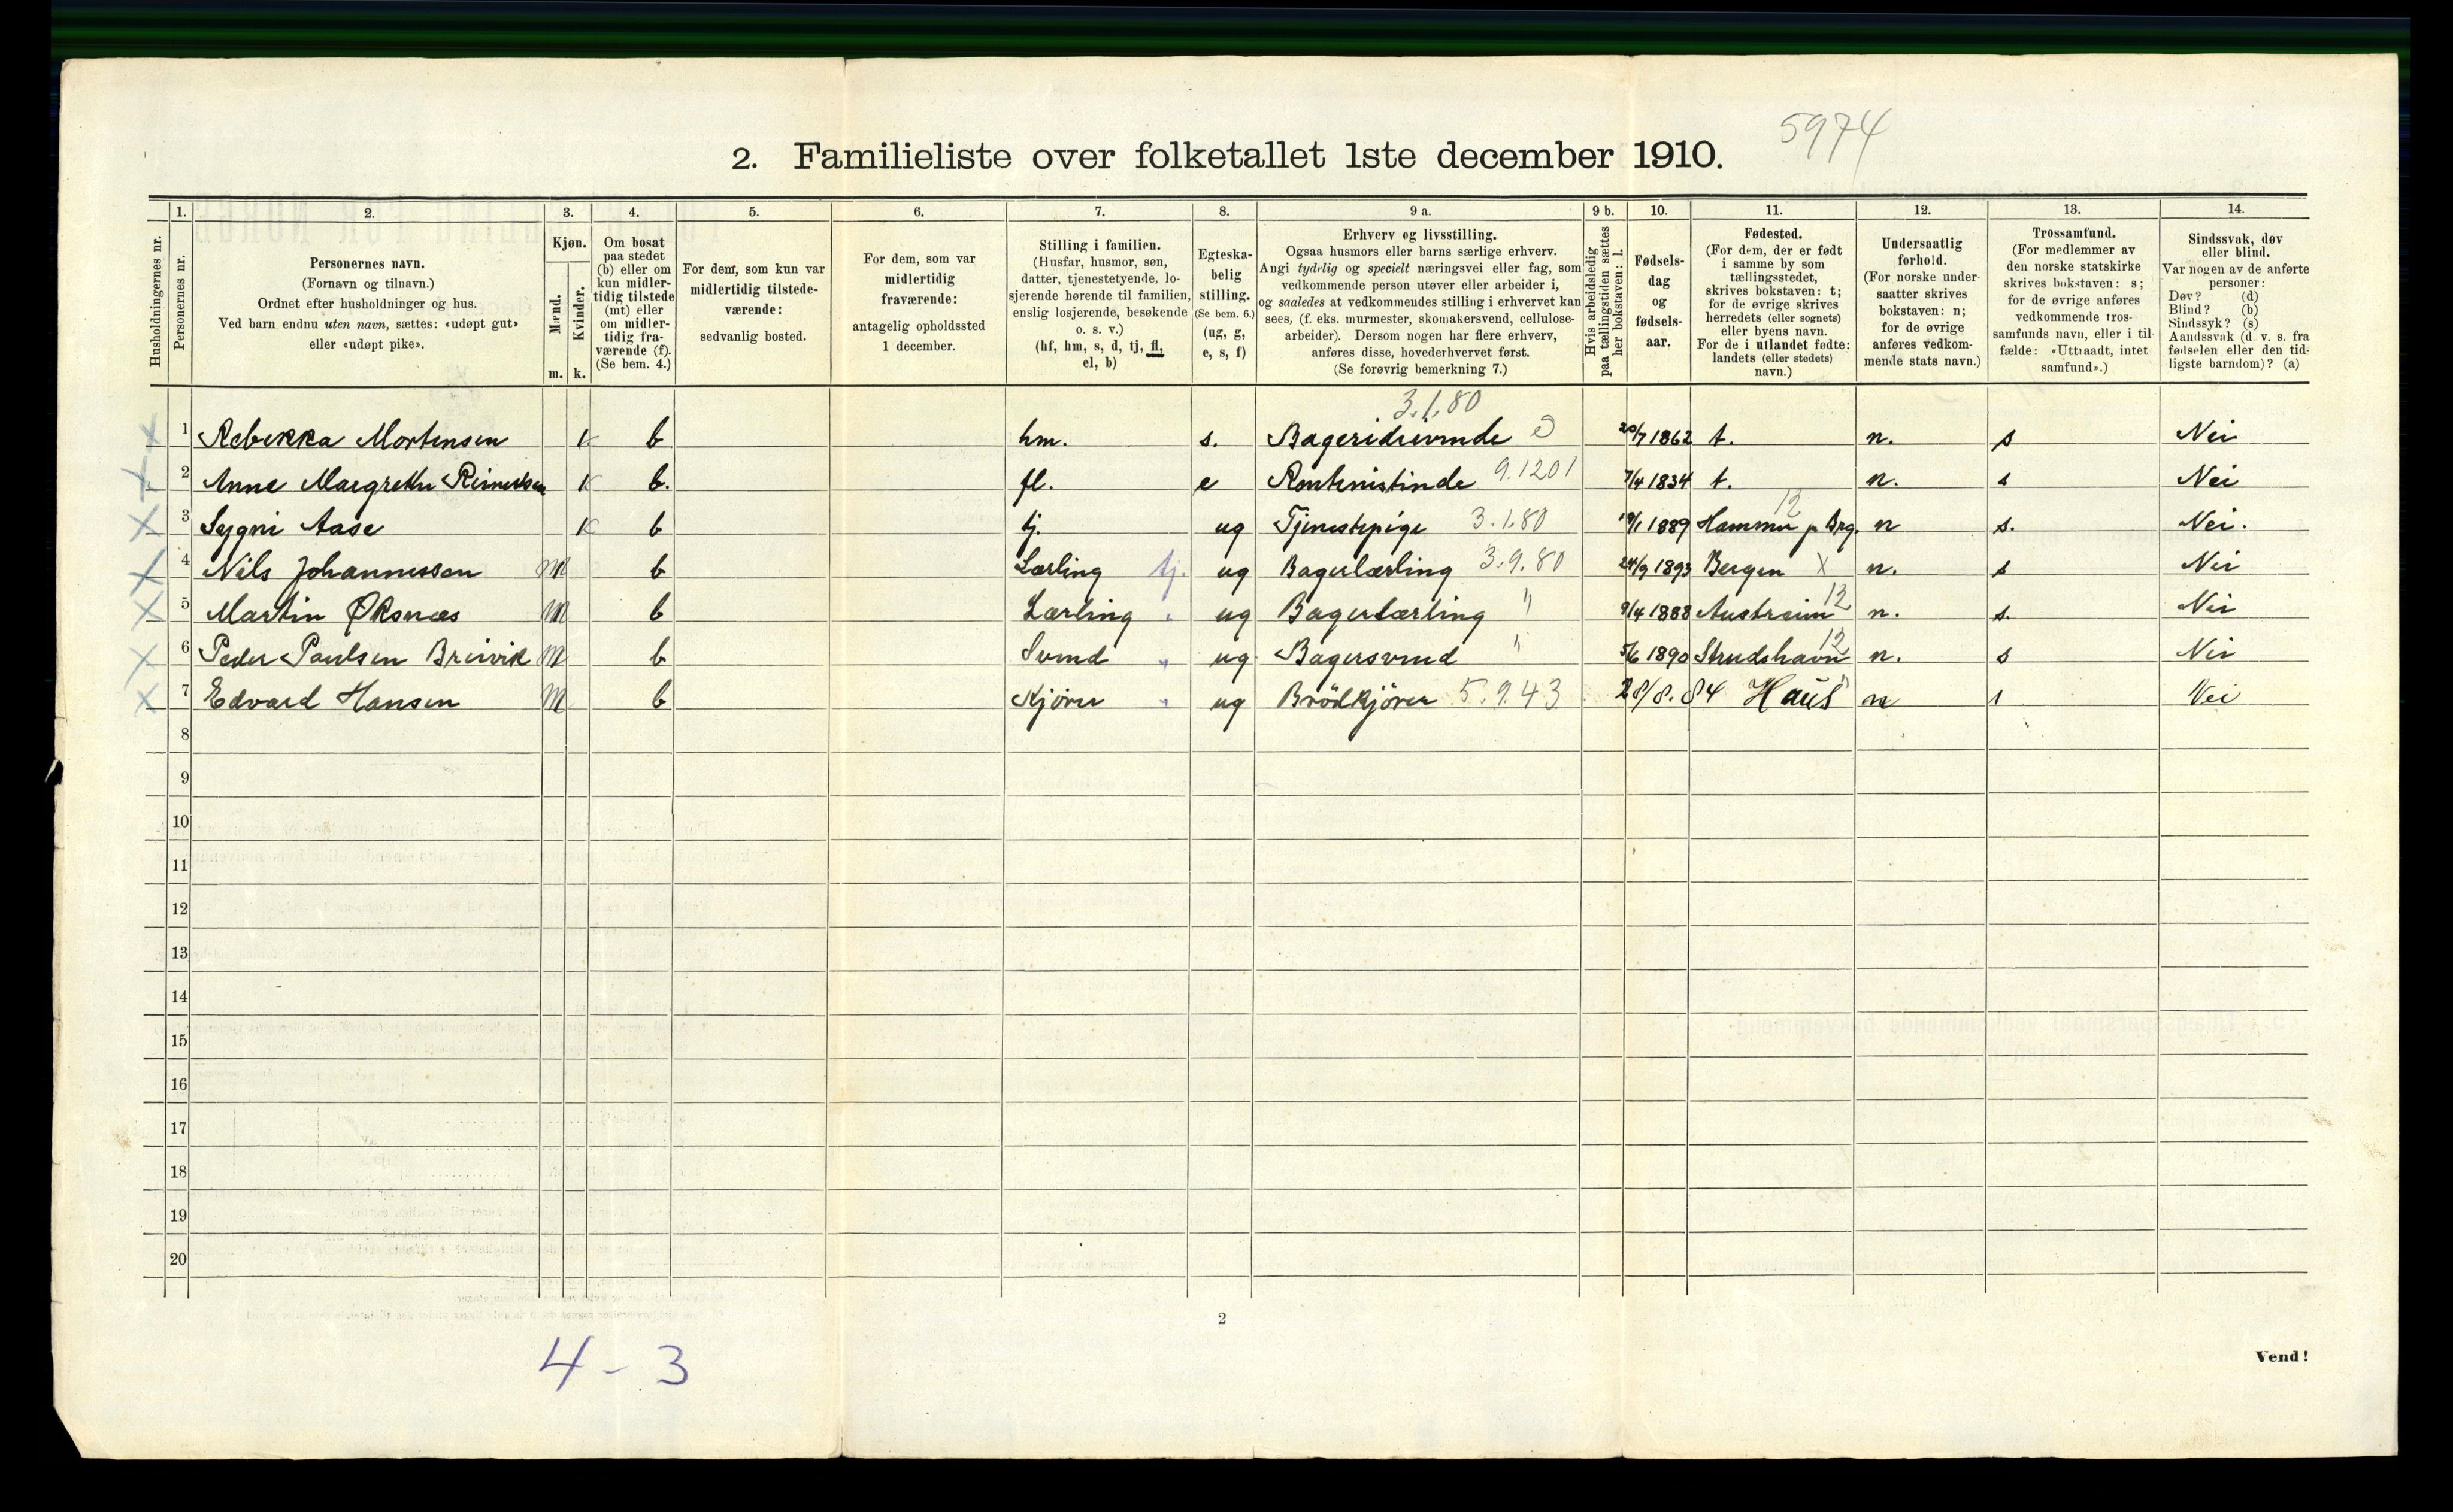 5974
2. Familieliste over folketallet 1ste december 1910.
Husholdningernes nr.
1.
Personernes nr.
2.
Personernes navn.
(Fornavn og tilnavn.)
Ordnet efter husholdninger og hus.
Ved barn endnu uten navn, sættes: «udøpt gut»
eller «udøpt pike».
3.
Kjøn.
Mænd.
Kvinder.
m. k.
4.
Om bosat
paa stedet
(b) eller om
kun midler-
tidig tilstede
(mt) eller
om midler-
tidig fra-
værende (f).
(Se bem. 4.)
5.
For dem, som kun var
midlertidig tilstede-
værende:
sedvanlig bosted.
6.
For dem, som var
midlertidig
fraværende:
antagelig opholdssted
1 december.
7.
Stilling i familien.
(Husfar, husmor, søn,
datter, tjenestetyende, lo-
sjerende hørende til familien,
enslig losjerende, besøkende
o. s. v.)
(hf, hm, s, d, tj, fl,
el, b)
8.
Egteska-
belig
stilling.
(Se bem. 6.)
(ug, g,
e, s, f)
9 a.
Erhverv og livsstilling.
Ogsaa husmors eller barns særlige erhverv.
Angi tydelig og specielt næringsvei eller fag, som
vedkommende person utøver eller arbeider i,
og saaledes at vedkommendes stilling i erhvervet kan
sees, (f. eks. murmester, skomakersvend, cellulose-
arbeider). Dersom nogen har flere erhverv,
anføres disse, hovederhvervet først.
(Se forøvrig bemerkning 7.)
9 b.
Hvis arbeidsledig
paa tællingstiden sættes
her bokstaven: l.
10.
Fødsels-
dag
og
fødsels-
aar.
11.
Fødested.
(For dem, der er født
i samme by som
tællingsstedet,
skrives bokstaven: t;
for de øvrige skrives
herredets (eller sognets)
eller byens navn.
For de i utlandet fødte:
landets (eller stedets)
navn.)
12.
Undersaatlig
forhold.
(For norske under-
saatter skrives
bokstaven: n;
for de øvrige
anføres vedkom-
mende stats navn.)
13.
Trossamfund.
(For medlemmer av
den norske statskirke
skrives bokstaven: s;
for de øvrige anføres
vedkommende tros-
samfunds navn, eller i til-
fælde: «Uttraadt, intet
samfund».)
14.
Sindssvak, døv
eller blind.
Var nogen av de anførte
personer:
Døv? (d)
Blind? (b)
Sindssyk? (s)
Aandssvak (d. v. s. fra
fødselen eller den tid-
ligste barndom)? (a)
3.1.80
X 1 Rebekka Mortensen k b hm. s. Bageridrivende 20/7 1862 t. n. s Nei
X 2 Anne Margrethe k b. fl. e Rentenistinde 9.1201 7/4 1834 t. n. s Nei
12
X 3 Sygni Aase k b tj. ug Tjenestepige 3.1.80 19/1 1889 Hammer p Brg. n s. Nei.
X 4 Nils Johannessen m b Lærling tj. ug Bagerlærling 3.9.80 24/9 1893 Bergen X n. s Nei
X 5 Martin Øksnæs m b Lærling " ug Bagerlærling " 9/4 1888 Austreim 12 n. s. Nei
X 6 Peder Paulsen Breivik m b Svend " ug Bagersvend " 5/6 1890 Strudshavn 12 n. s Nei
X 7 Edvard Hansen m b Kjører " ug Brödkjörer 5.9.43 28/8.84 Haus " n s Nei
8
9
10
11
12
13
14
15
16
17
18
19
20
2
4 - 3
Vend!